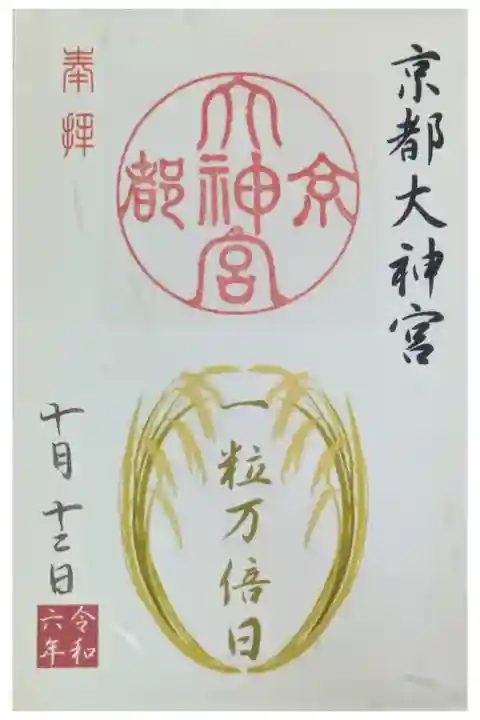 京都大神宮
京都大神宮
一粒万倍日
奉拝
十月十二日
令和
六年